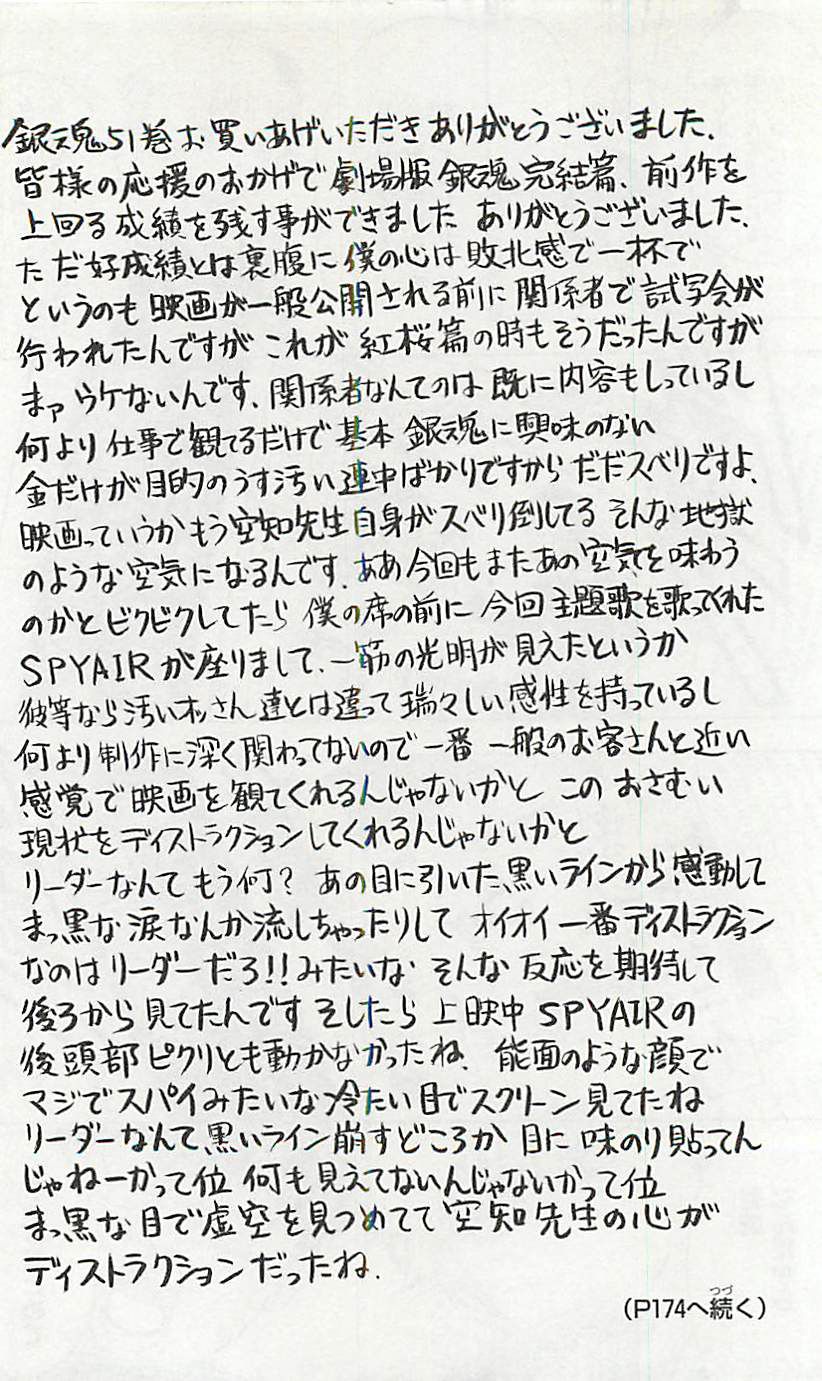 銀魂51巻お買いあげいただきありがとうございました.
皆様の応援のおかげで劇場版 銀魂 完結篇、前作を
上回る成績を残す事ができました ありがとうございました、
ただ好成績とは裏腹に僕の心は敗北感で一杯で
というのも 映画が一般公開される前に関係者で試写会が
行われたんですが これが 紅桜篇の時もそうだったんですが
まァ ウケないんです、関係者なんてのは 既に内容もしっているし
何より 仕事で観てるだけで基本 銀魂に興味のない
金だけが目的のうす汚い連中ばかりですから だだスベリですよ、
映画っていうか もう空知先生自身がスベリ倒してる そんな地獄
のような空気になるんです、ああ今回もまたあの空気を味わう
のかとビクビクしてたら 僕の席の前に 今回主題歌を歌ってくれた
SPYAIRが座りまして、一筋の光明が見えたというか
彼等なら汚いオッさん達とは違って瑞々しい感性を持っているし
何より制作に深く関わってないので一番 一般のお客さんと近い
感覚で映画を観てくれるんじゃないかと このおさむい
現状をディストラクションしてくれるんじゃないかと
リーダーなんて もう何？ あの目に引いた黒いラインから感動して
まっ黒な涙なんか流しちゃったりして オイオイ一番ディストラクション
なのはリーダーだろ!!みたいな そんな反応を期待して
後ろから見てたんです そしたら 上映中 SPYAIRの
後頭部ピクリとも動かなかったね、能面のような顔で
マジでスパイみたいな冷たい目でスクリーン見てたね
リーダーなんて黒いライン崩すどころか 目に味のり貼ってん
じゃねーかって位 何も見えてないんじゃないかって位
まっ黒な目で虚空を見つめてて 空知先生の心が
ディストラクションだったね.
(P174へ続く)
つづ